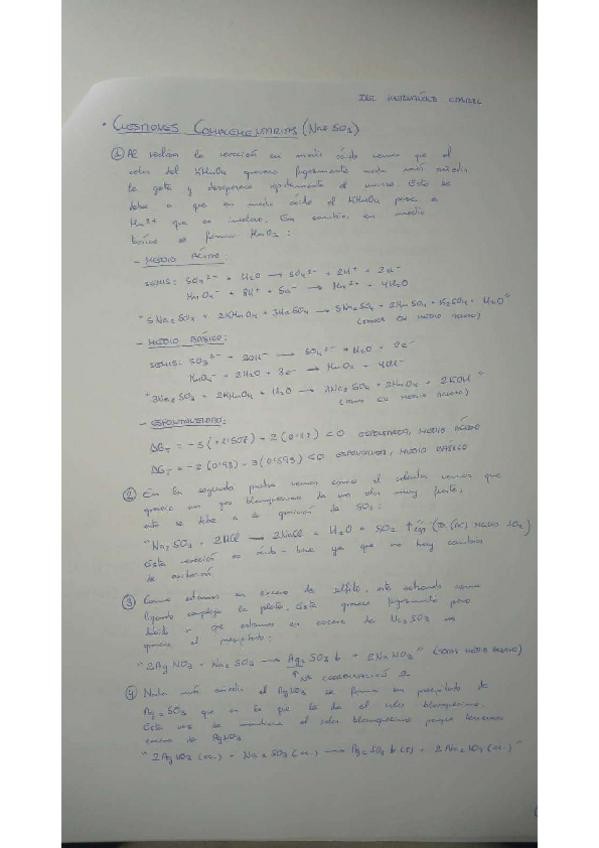 • CUESTIONES COMPLEMENTARIAS (Na2SO3)
① Al realizar la reacción en medio ácido vemos que el
color del KMnO4 nada más añadir
la gota y desaparece rápidamente el mismo. Esto se
debe a que en medio ácido el KMnO4 pasa a
Mn2+ que es incoloro. En cambio, en medio
básico se forma MnO2:
- MEDIO ÁCIDO:
SEMIS: SO3 2- + H2O → SO4 2- + 2H+ + 2e-
MnO4- + 8H+ + 5e- → Mn2+ + 4H2O
"5Na2SO3 + 2KMnO4 + 3H2SO4 → 5Na2SO4 + 2MnSO4 + K2SO4 + H2O"
- MEDIO BÁSICO:
SEMIS: SO3 2- + 2OH- → SO4 2- + H2O + 2e-
MnO4- + 2H2O + 3e- → MnO2 + 4OH-
"3Na2SO3 + 2KMnO4 + H2O → 3Na2SO4 + 2MnO2 + 2KOH"
- ESPONTANEIDAD:
<0 ESPONTÁNEA, MEDIO ÁCIDO
<0 ESPONTÁNEA, MEDIO BÁSICO
② En la segunda prueba vemos como al calentar vemos que
aparece un gas blanquecino de un olor muy fuerte,
esto se debe a la aparición de SO2:
"Na2SO3 + 2HCl → 2NaCl + H2O + SO2 ↑
Esta reacción es ácido-base ya que no hay cambios
de oxidación
③ Como estamos en exceso de sulfito, este actuando como
ligando compleja la plata. Esta aparece pero
debido a que estamos en exceso de Na2SO3 no
aparece el precipitado:
"2AgNO3 + Na2SO3 → Ag2SO3 ↓ + 2NaNO3"
↑ Nº COORDINACIÓN 2
④ Nada más añadir el AgNO3 se forma un precipitado de
Ag2SO3 que es lo que le da el color blanquecino.
Esta vez se mantiene el color blanquecino porque tenemos
exceso de AgNO3
"2AgNO3 (ac.) + Na2SO3 (ac.) → Ag2SO3 ↓ (s) + 2NaNO3 (ac.)"